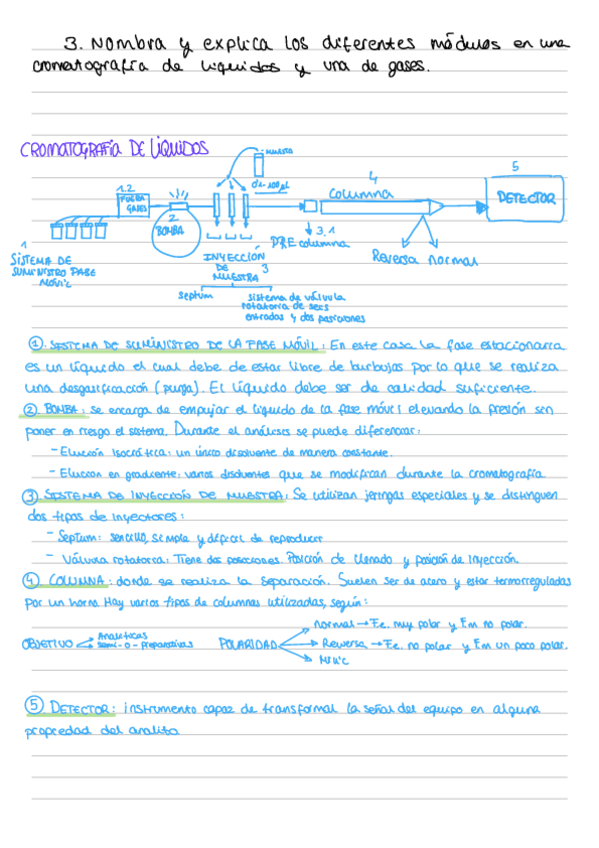 3. Nombra y explica los diferentes módulos en una
cromatografía de líquidos y una de gases.
CROMATOGRAFÍA DE LÍQUIDOS
MUESTRA
5
4
1.2
0.1-100 µl
columna
DETECTOR
PURGA
GASES
2
BOMBA
3.1
1
PRE columna
Reversa normal
SISTEMA DE
SUMINISTRO FASE
MÓVIL
INYECCIÓN
DE
MUESTRA 3
septum
sistema de válvula
rotatoria de seis
entradas y dos posiciones
①. SISTEMA DE SUMINISTRO DE LA FASE MÓVIL: En este caso la fase estacionaria
es un líquido el cual debe de estar libre de burbujas por lo que se realiza
una desgasificación (purga). El líquido debe ser de calidad suficiente.
② BOMBA: se encarga de empujar el líquido de la fase móvil elevando la presión sin
poner en riesgo el sistema. Durante el análisis se puede diferenciar:
- Elución Isocrática: un único disolvente de manera constante.
- Elución en gradiente: varios disolventes que se modifican durante la cromatografía
③ SISTEMA DE INYECCIÓN DE MUESTRA: Se utilizan jeringas especiales y se distinguen
dos tipos de inyectores:
- Septum: sencillo, simple y difícil de reproducir
- Válvula rotatoria: Tiene dos posiciones. Posición de llenado y posición de inyección.
④ COLUMNA: donde se realiza la separación. Suelen ser de acero y estar termorreguladas
por un horno Hay varios tipos de columnas utilizadas, según:
OBJETIVO
Analíticas
semi-o-preparativas
POLARIDAD
normal → F.e. muy polar y F.m no polar.
Reversa → F.e. no polar y F.m un poco polar.
⑤ DETECTOR: instrumento capaz de transformar la señal del equipo en alguna
propiedad del analito